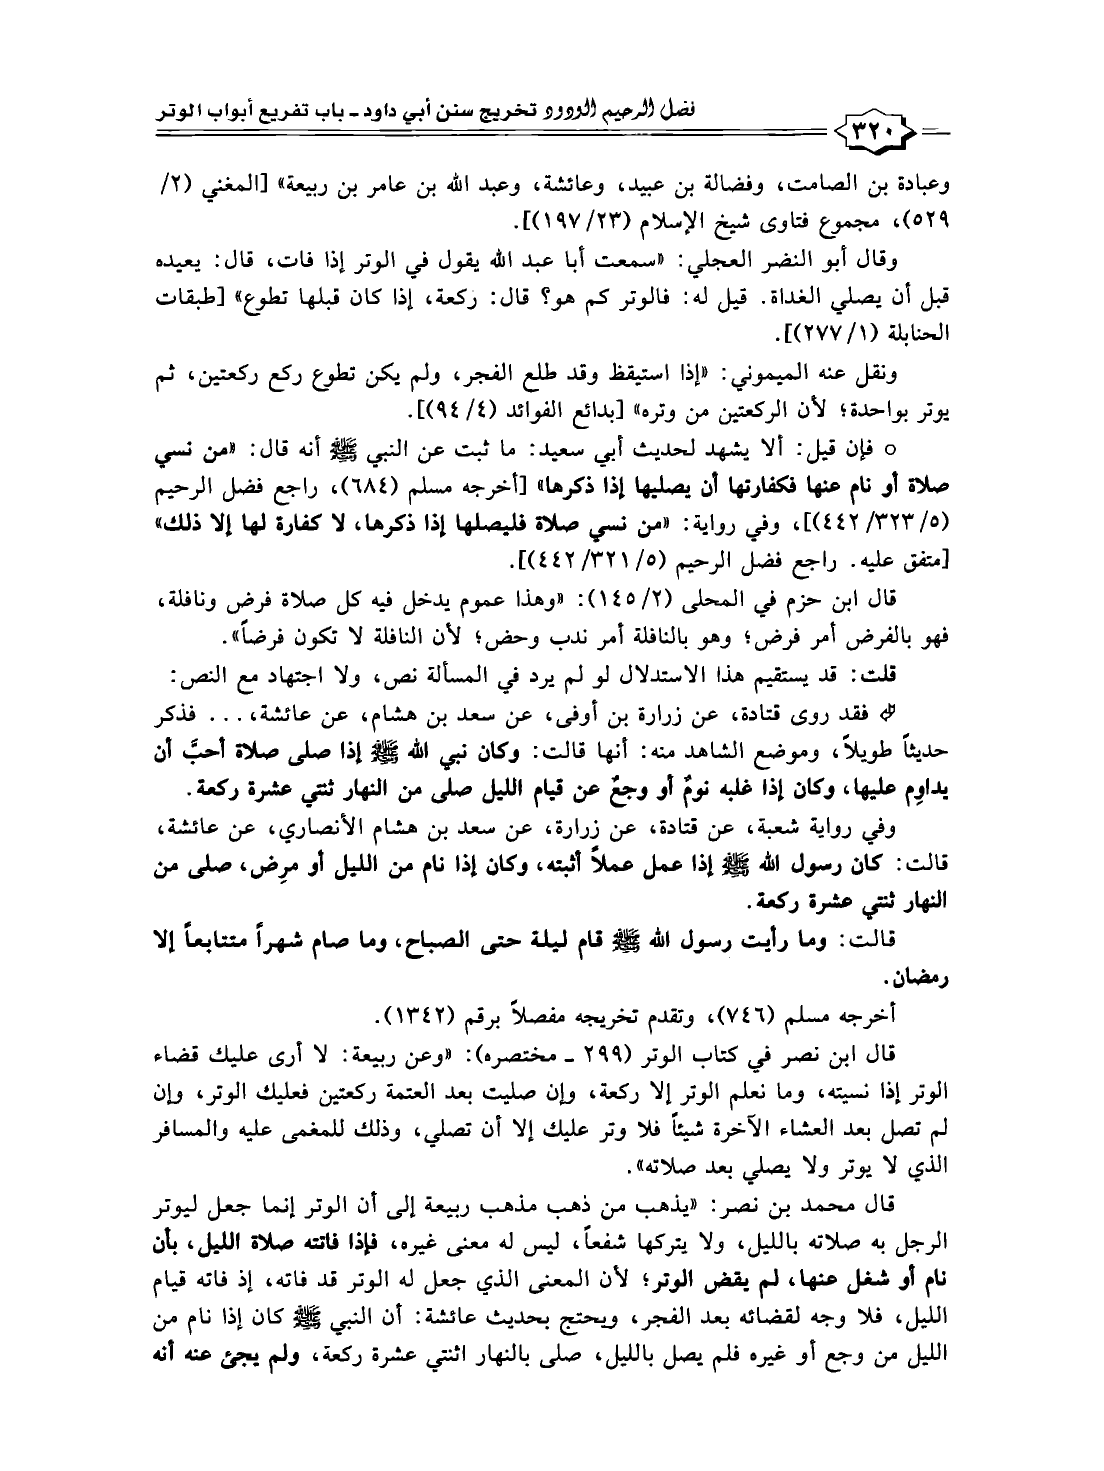 فضل الرحيم الودود تخريج سنن أبي داود ـ باب تفريع أبواب الوتر
٣٢٠
وعبادة بن الصامت، وفضالة بن عبيد، وعائشة، وعبد الله بن عامر بن ربيعة» [المغني (٢/
٥٢٩)، مجموع فتاوى شيخ الإسلام (١٩٧/٢٣)].
وقال أبو النضر العجلي: «سمعت أبا عبد الله يقول في الوتر إذا فات، قال: يعيده
قبل أن يصلي الغداة. قيل له: فالوتر كم هو؟ قال: ركعة، إذا كان قبلها تطوع» [طبقات
الحنابلة (٢٧٧/١)].
ونقل عنه الميموني: «إذا استيقظ وقد طلع الفجر، ولم يكن تطوع ركع ركعتين، ثم
يوتر بواحدة؛ لأن الركعتين من وتره» [بدائع الفوائد (٩٤/٤)].
○ فإن قيل: ألا يشهد لحديث أبي سعيد: ما ثبت عن النبي ﷺ أنه قال: «من نسي
صلاة أو نام عنها فكفارتها أن يصليها إذا ذكرها» [أخرجه مسلم (٦٨٤)، راجع فضل الرحيم
(٤٤٢/٣٢٣/٥)]، وفي رواية: «من نسي صلاة فليصلها إذا ذكرها، لا كفارة لها إلا ذلك»
[متفق عليه. راجع فضل الرحيم (٤٤٢/٣٢١/٥)].
قال ابن حزم في المحلى (١٤٥/٢): «وهذا عموم يدخل فيه كل صلاة فرض ونافلة،
فهو بالفرض أمر فرض؛ وهو بالنافلة أمر ندب وحض؛ لأن النافلة لا تكون فرضاً».
قلت: قد يستقيم هذا الاستدلال لو لم يرد في المسألة نص، ولا اجتهاد مع النص:
فقد روى قتادة، عن زرارة بن أوفى، عن سعد بن هشام، عن عائشة، ... فذكر
حديثاً طويلاً، وموضع الشاهد منه: أنها قالت: وكان نبي الله ﷺ إذا صلى صلاة أحبَّ أن
يداوِم عليها، وكان إذا غلبه نومٌ أو وجعٌ عن قيام الليل صلى من النهار ثنتي عشرة ركعة.
وفي رواية شعبة، عن قتادة، عن زرارة، عن سعد بن هشام الأنصاري، عن عائشة،
قالت: كان رسول الله ﷺ إذا عمل عملاً أثبته، وكان إذا نام من الليل أو مرِض، صلى من
النهار ثنتي عشرة ركعة.
قالت: وما رأيت رسول الله ﷺ قام ليلة حتى الصباح، وما صام شهراً متتابعاً إلا
رمضان.
أخرجه مسلم (٧٤٦)، وتقدم تخريجه مفصلاً برقم (١٣٤٢).
قال ابن نصر في كتاب الوتر (٢٩٩ ـ مختصره): «وعن ربيعة: لا أرى عليك قضاء
الوتر إذا نسيته، وما نعلم الوتر إلا ركعة، وإن صليت بعد العتمة ركعتين فعليك الوتر، وإن
لم تصل بعد العشاء الآخرة شيئاً فلا وتر عليك إلا أن تصلي، وذلك للمغمى عليه والمسافر
الذي لا يوتر ولا يصلي بعد صلاته».
قال محمد بن نصر: «يذهب من ذهب مذهب ربيعة إلى أن الوتر إنما جعل ليوتر
الرجل به صلاته بالليل، ولا يتركها شفعاً، ليس له معنى غيره، فإذا فاتته صلاة الليل، بأن
نام أو شغل عنها، لم يقض الوتر؛ لأن المعنى الذي جعل له الوتر قد فاته، إذ فاته قيام
الليل، فلا وجه لقضائه بعد الفجر، ويحتج بحديث عائشة: أن النبي ﷺ كان إذا نام من
الليل من وجع أو غيره فلم يصل بالليل، صلى بالنهار اثنتي عشرة ركعة، ولم يجئ عنه أنه